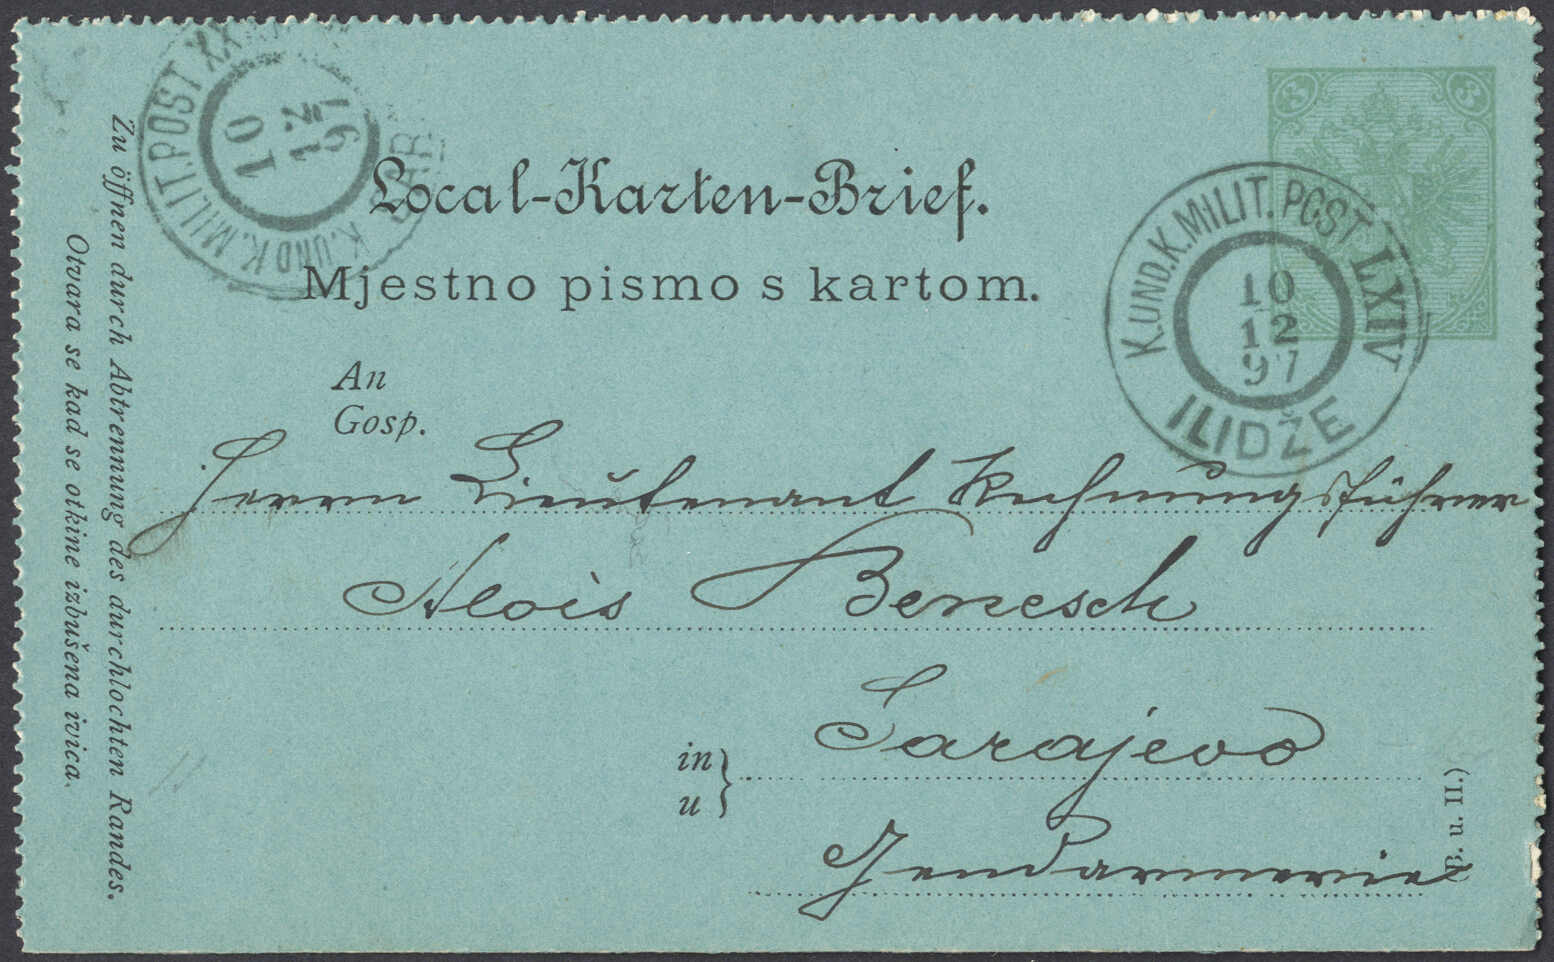 K. UND K. MILIT. POST XX
10
12
97
3 3
Local-Karten-Brief.
Mjestno pismo s kartom.
K. UND. K. MILIT. POST LXIV
10
12
97
ILIDŽE
An
Gosp.
Herrn Lieutenant Rechnungsführer
Alois Benesch
in
u
Sarajevo
Gendarmerie
Zu öffnen durch Abtrennung des durchlochten Randes.
Otvara se kad se otkine izbušena ivica.
(B. u. H.)